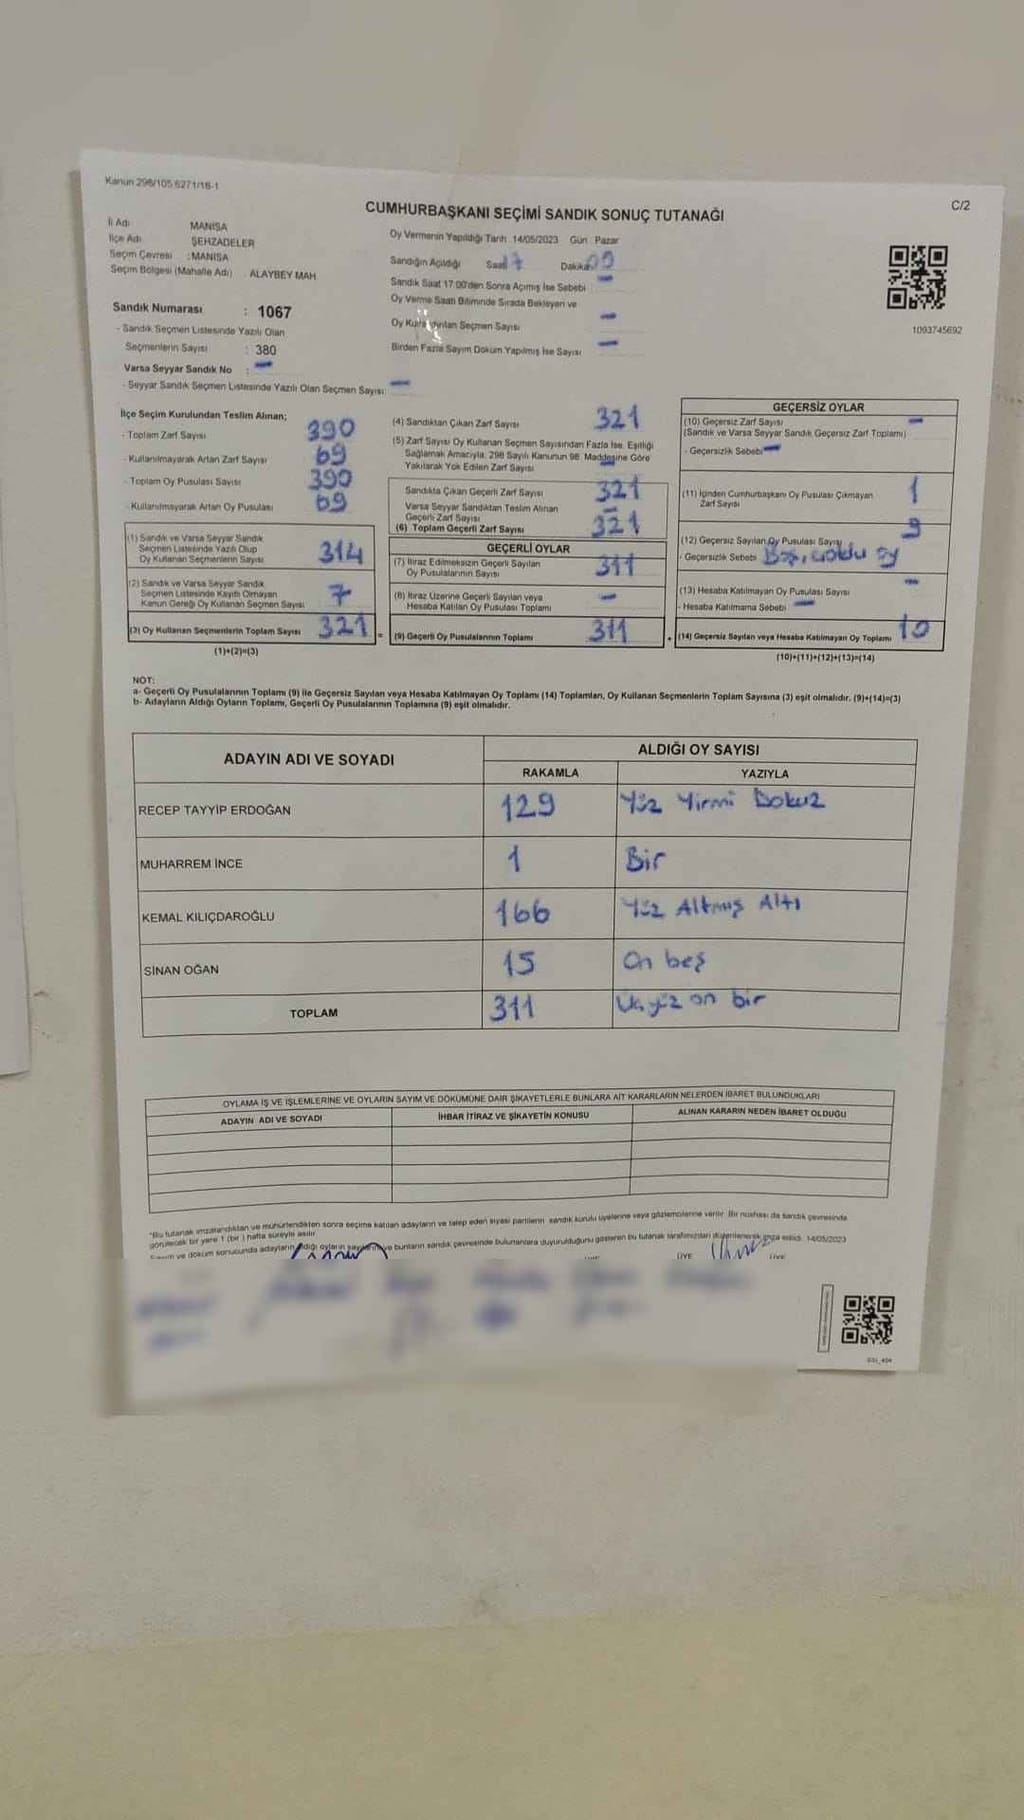 Kanun 298/105,6271/16-1
C/2
CUMHURBAŞKANI SEÇİMİ SANDIK SONUÇ TUTANAĞI
İl Adı MANİSA
İlçe Adı ŞEHZADELER
Seçim Çevresi : MANİSA
Seçim Bölgesi (Mahalle Adı) ALAYBEY MAH.
Sandık Numarası : 1067
- Sandık Seçmen Listesinde Yazılı Olan
Seçmenlerin Sayısı : 380
Varsa Seyyar Sandık No : -
- Seyyar Sandık Seçmen Listesinde Yazılı Olan Seçmen Sayısı: -
Oy Vermenin Yapıldığı Tarih 14/05/2023 Gün Pazar
Sandığın Açıldığı Saat 17 Dakika 09
Sandık Saat 17:00'den Sonra Açımış İse Sebebi -
Oy Verme Saati Bitiminde Sırada Bekleyen ve
Oy Seçmen Sayısı -
Birden Fazla Sayım Döküm Yapılmış İse Sayısı -
1093745692
İlçe Seçim Kurulundan Teslim Alınan;
- Toplam Zarf Sayısı 390
- Kullanılmayarak Artan Zarf Sayısı 69
- Toplam Oy Pusulası Sayısı 390
- Kullanılmayarak Artan Oy Pusulası 69
(1) Sandık ve Varsa Seyyar Sandık
Seçmen Listesinde Yazılı Olup
Oy Kullanan Seçmenlerin Sayısı 314
(2) Sandık ve Varsa Seyyar Sandık
Seçmen Listesinde Kayıtlı Olmayan
Kanun Gereği Oy Kullanan Seçmen Sayısı 7
(3) Oy Kullanan Seçmenlerin Toplam Sayısı 321 =
(1)+(2)=(3)
(4) Sandıktan Çıkan Zarf Sayısı 321
(5) Zarf Sayısı Oy Kullanan Seçmen Sayısından Fazla İse, Eşitliği
Sağlamak Amacıyla, 298 Sayılı Kanunun 98. Maddesine Göre
Yakılarak Yok Edilen Zarf Sayısı -
Sandıkta Çıkan Geçerli Zarf Sayısı 321
Varsa Seyyar Sandıktan Teslim Alınan
Geçerli Zarf Sayısı -
(6) Toplam Geçerli Zarf Sayısı 321
GEÇERLİ OYLAR
(7) İtiraz Edilmeksizin Geçerli Sayılan
Oy Pusulalarının Sayısı 311
(8) İtiraz Üzerine Geçerli Sayılan veya
Hesaba Katılan Oy Pusulası Toplamı -
(9) Geçerli Oy Pusulalarının Toplamı 311 +
GEÇERSİZ OYLAR
(10) Geçersiz Zarf Sayısı -
(Sandık ve Varsa Seyyar Sandık Geçersiz Zarf Toplamı)
- Geçersizlik Sebebi -
(11) İçinden Cumhurbaşkanı Oy Pusulası Çıkmayan 1
Zarf Sayısı
(12) Geçersiz Sayılan Oy Pusulası Sayısı 9
- Geçersizlik Sebebi Boş, oy
(13) Hesaba Katılmayan Oy Pusulası Sayısı -
- Hesaba Katılmama Sebebi -
(14) Geçersiz Sayılan veya Hesaba Katılmayan Oy Toplamı 10
(10)+(11)+(12)+(13)=(14)
NOT:
a- Geçerli Oy Pusulalarının Toplamı (9) ile Geçersiz Sayılan veya Hesaba Katılmayan Oy Toplamı (14) Toplamları, Oy Kullanan Seçmenlerin Toplam Sayısına (3) eşit olmalıdır. (9)+(14)=(3)
b- Adayların Aldığı Oyların Toplamı, Geçerli Oy Pusulalarının Toplamına (9) eşit olmalıdır.
ADAYIN ADI VE SOYADI
ALDIĞI OY SAYISI
RAKAMLA YAZIYLA
RECEP TAYYİP ERDOĞAN 129 Yüz Yirmi Dokuz
MUHARREM İNCE 1 Bir
KEMAL KILIÇDAROĞLU 166 Yüz Altmış Altı
SİNAN OĞAN 15 On beş
TOPLAM 311 Üçyüz on bir
OYLAMA İŞ VE İŞLEMLERİNE VE OYLARIN SAYIM VE DÖKÜMÜNE DAİR ŞİKAYETLERLE BUNLARA AİT KARARLARIN NELERDEN İBARET BULUNDUKLARI
ADAYIN ADI VE SOYADI İHBAR İTİRAZ VE ŞİKAYETİN KONUSU ALINAN KARARIN NEDEN İBARET OLDUĞU
"Bu tutanak imzalandıktan ve mühürlendikten sonra seçime katılan adayların ve talep eden siyasi partilerin sandık kurulu üyelerine veya gözlemcilerine verilir. Bir nüshası da sandık çevresinde
görülecek bir yere 1 (bir ) hafta süreyle asılır.
Sayım ve döküm sonucunda adayların aldığı oyların sayılarını ve bunların sandık çevresinde bulunanlara duyurulduğunu gösteren bu tutanak tarafımızdan düzenlenerek imza edildi. 14/05/2023
ÜYE ÜYE